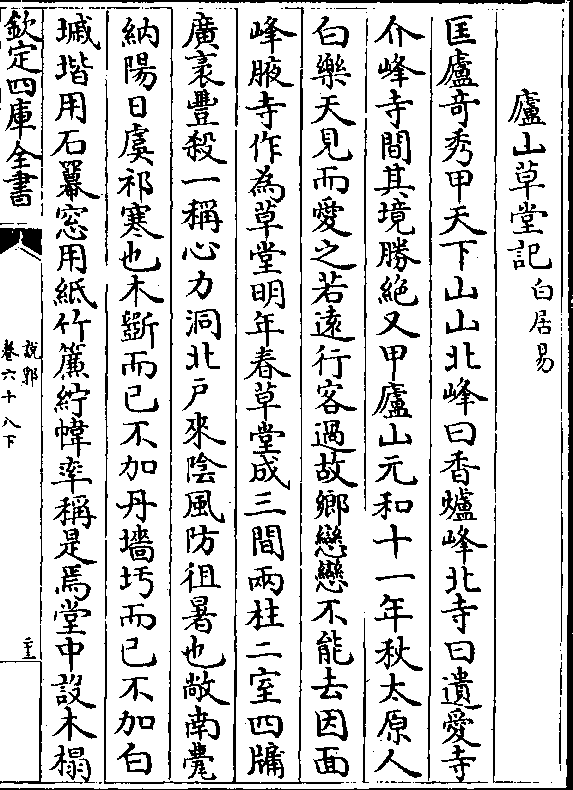 廬山草堂記白居易
匡廬竒秀甲天下山山北峰曰香爐峰北寺曰遺愛寺
介峰寺間其境勝絶又甲廬山元和十一年秋太原人
白樂天見而愛之若逺行客過故鄉戀戀不能去因面
峰腋寺作為草堂明年春草堂成三間兩柱二室四牖
廣袤豐殺一稱心力洞北戶來陰風防徂暑也敞南甍
納陽日虞祁寒也木斵而已不加丹墻圬而已不加白
墄堦用石羃窓用紙竹簾紵幃率稱是焉堂中設木榻
欽定四庫全書
說郛
卷六十八下